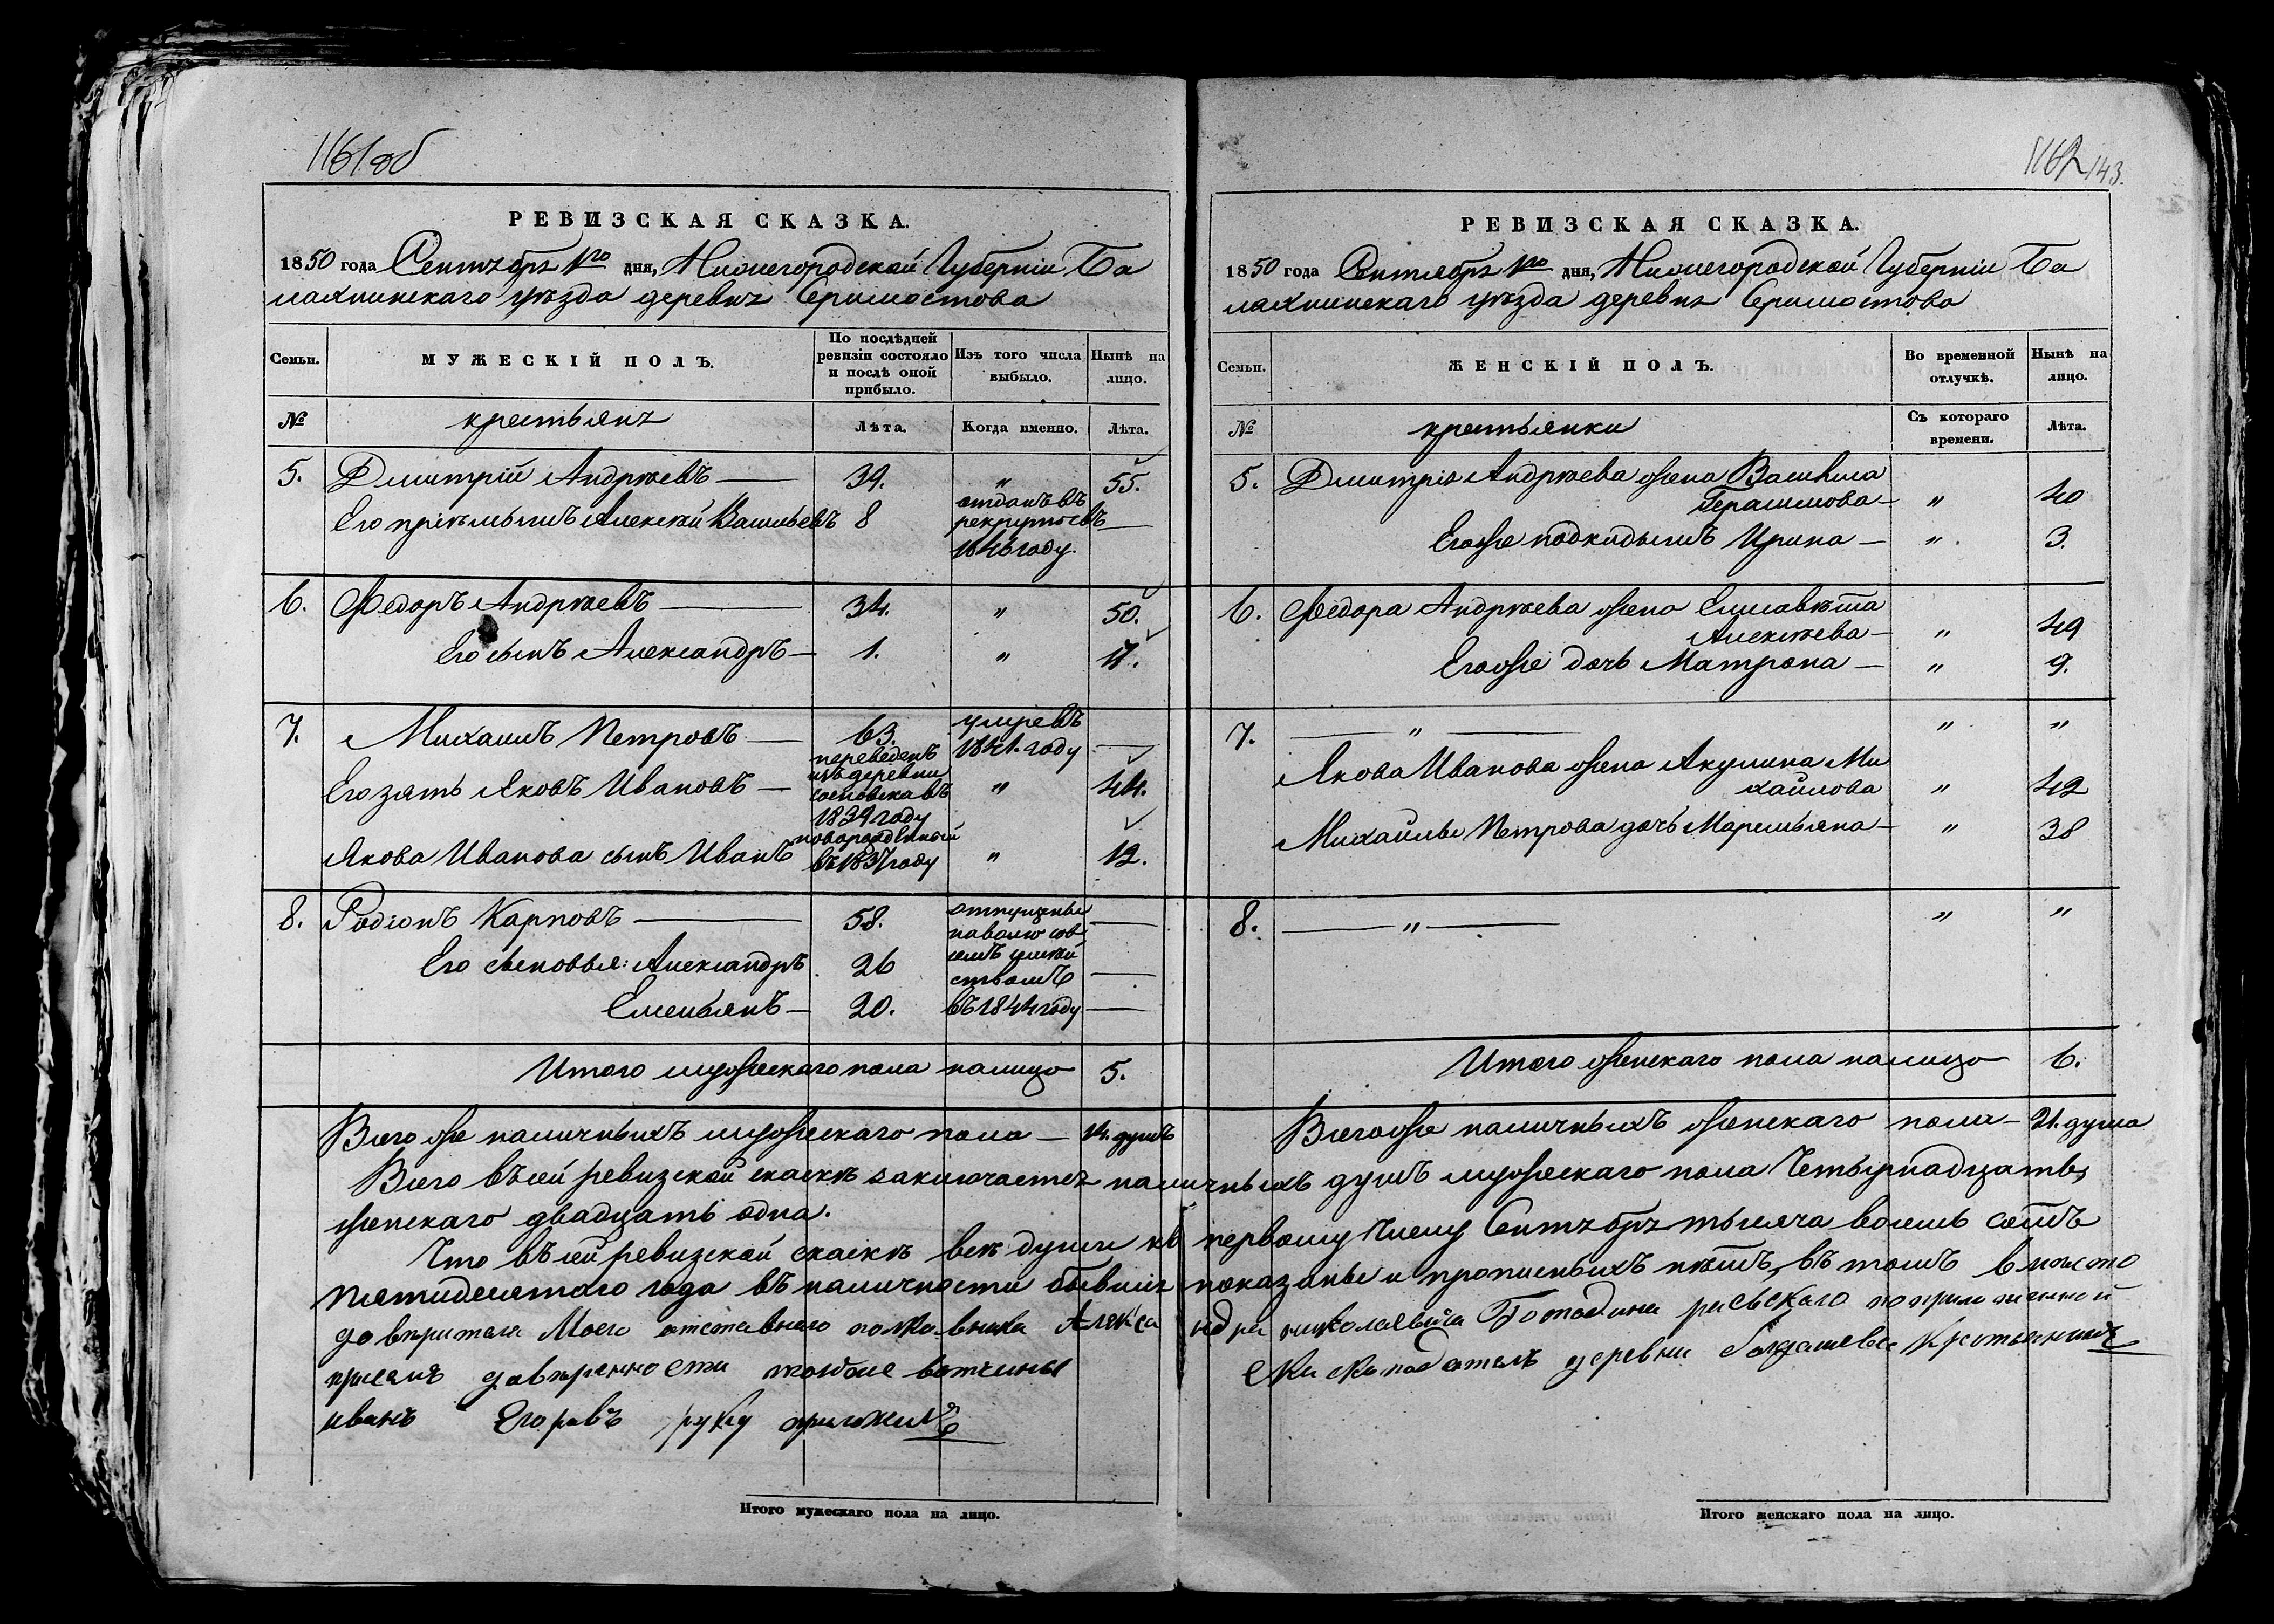 1161об
РЕВИЗСКАЯ СКАЗКА.
1850 года Сентября 1го дня, Нижегородской Губернiи Ба
лахнинскаго уѣзда деревня
Семьи.
МУЖЕСКІЙ ПОЛЪ.
По послѣдней ревизіи состояло и послѣ оной прибыло.
Изъ того числа выбыло.
Нынѣ на лицо.
№
крестьяня
Лѣта.
Когда именно.
Лѣта.
5. Дмитрій Андрѣевъ — 39. " 55.
Его пріемышъ Алексѣй Васильевъ 8 отданъ въ рекруты въ 1846 году. —
6. Федоръ Андрѣевъ — 34. " 50.
Его сынъ Александръ — 1. " 17.
7. Михаилъ Петровъ — 63. умревъ 1841. году —
Его зять Яковъ Ивановъ — переведенъ изъ деревни въ 1839 году " 44.
Якова Иванова сынъ Иванъ новорожденный въ 1837 году " 12.
8. Родіонъ Карповъ — 58. отпущены на волю со —
Его сыновья: Александръ 26 всемъ семей ствомъ —
Емельянъ — 20. въ 1844 году —
Итого мужескаго пола налицо 5.
Всего же наличныхъ мужескаго пола — 14. душъ
1162 143.
РЕВИЗСКАЯ СКАЗКА.
1850 года Сентября 1го дня, Нижегородской Губернiи Ба
лахнинскаго уѣзда деревня
Семьи.
ЖЕНСКІЙ ПОЛЪ.
Во временной отлучкѣ.
Нынѣ на лицо.
№
крестьянки
Съ котораго времени.
Лѣта.
5. Дмитрія Андрѣева жена Василиса
Герасимова — " 40
Егоже подкидышъ Ирина — " 3.
6. Федора Андрѣева жена Елисавѣта
Алексѣева — " 49
Егоже дочь Матрона — " 9.
7. — " — " "
Якова Иванова жена Акулина Ми
хайлова " 42
Михайлы Петрова дочь Маремьяна — " 38
8. — " — " "
Итого женскаго пола налицо 6.
Всегоже наличныхъ женскаго пола — 21. душа
Всего въ сей ревизской скаскѣ заключается наличныхъ душъ мужескаго пола Четырнадцать,
женскаго двадцать одна.
Что въ сей ревизской скаскѣ всѣ души къ первому числу Сентября тысяча восемь сотъ
пятидесятаго года въ наличности бывшія показаны и прописныхъ нѣтъ, въ томъ вмѣсто
довѣрителя Моего отставнаго полковника Александра николаевича
довѣренности тойже вотчины деревни Крестьянинъ
иванъ Егоровъ руку приложилъ
Итого мужескаго пола на лицо.
Итого женскаго пола на лицо.